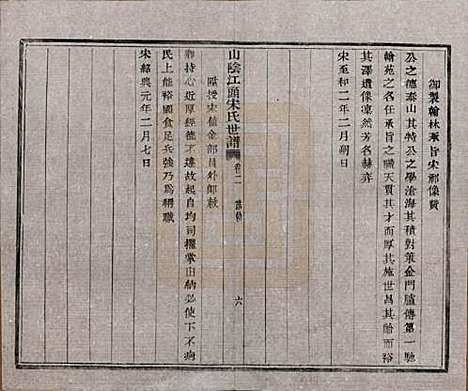 御製翰林承旨宋祁像贊
公之德泰山其特公之學滄海其積對策金門臚傳第一馳
翰苑之名任承旨之職天實其才而厚其施世昌其胎而裕
其澤遺像凜然芳名赫亦
宋至和二年二月朔日
山陰江頭宋氏世譜
卷二
六
授宋
金部員外郎敕
持心近厚經德不違故起自均司擢掌出納必使下不病
民上能裕國食足兵強乃為稱職
宋紹興元年二月七日